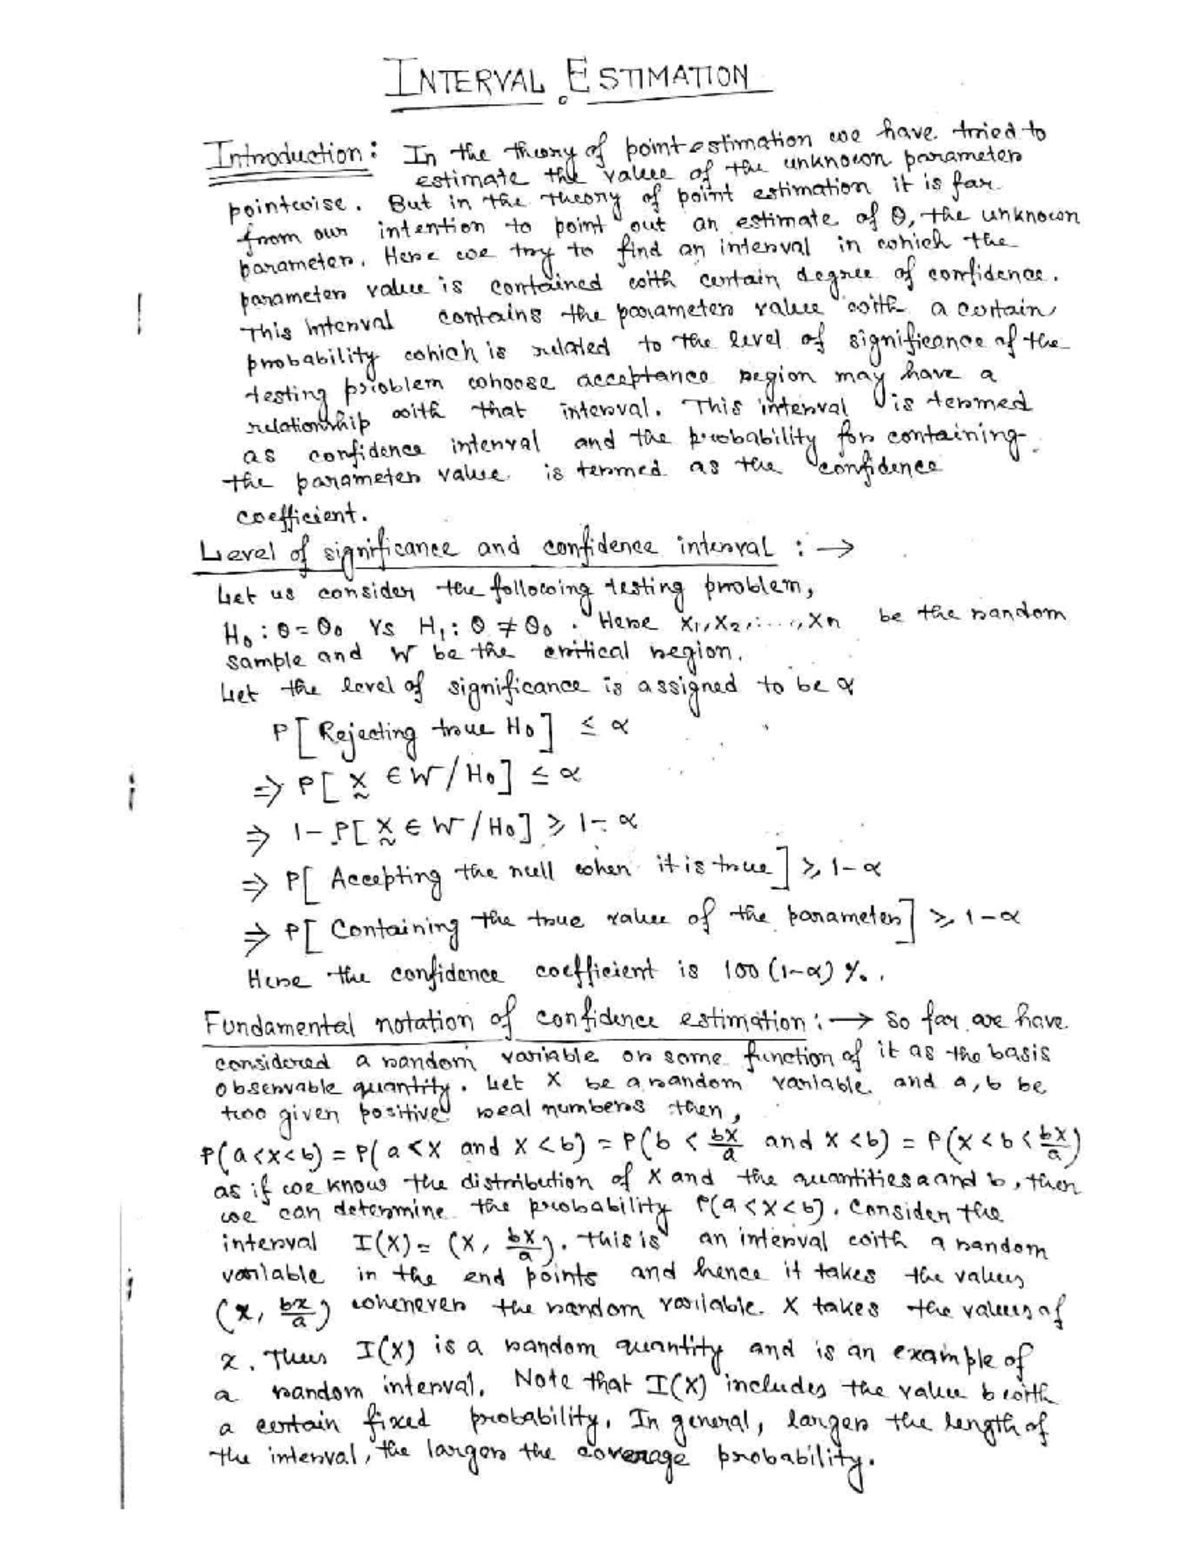 INTERVAL ESTIMATION
Introduction: In the theory of point estimation we have tried to
estimate the value of the unknown parameter
pointwise. But in the theory of point estimation it is far
from our intention to point out an estimate of θ, the unknown
parameter. Here we try to find an interval in which the
parameter value is contained with certain degree of confidence.
This interval contains the parameter value with a certain
probability which is related to the level of significance of the
testing problem whoose acceptance region may have a
relationship with that interval. This interval is termed
as confidence interval and the probability for containing
the parameter value is termed as the confidence
coefficient.
Level of significance and confidence interval : →
Let us consider the following testing problem,
H₀ : θ = θ₀ vs H₁ : θ ≠ θ₀ . Here X₁, X₂, ...., Xn be the random
sample and W be the critical region.
Let the level of significance is assigned to be α
P[ Rejecting true H₀ ] ≤ α
⇒ P[ X̰ ∈ W / H₀ ] ≤ α
⇒ 1 - P[ X̰ ∈ W / H₀ ] ≥ 1 - α
⇒ P[ Accepting the null when it is true ] ≥ 1 - α
⇒ P[ Containing the true value of the parameter ] ≥ 1 - α
Here the confidence coefficient is 100 (1-α) %.
Fundamental notation of confidence estimation : → So far we have
considered a random variable or some function of it as the basis
observable quantity. Let X be a random variable and a, b be
two given positive real numbers then,
P(a < X < b) = P(a < X and X < b) = P(b < bX/a and X < b) = P(X < b < bX/a)
as if we know the distribution of X and the quantities a and b, then
we can determine the probability P(a < X < b). Consider the
interval I(X) = (X, bX/a). This is an interval with a random
variable in the end points and hence it takes the values
(x, bx/a) whenever the random variable X takes the values of
x. Thus I(X) is a random quantity and is an example of
a random interval. Note that I(X) includes the value b with
a certain fixed probability. In general, larger the length of
the interval, the larger the coverage probability.